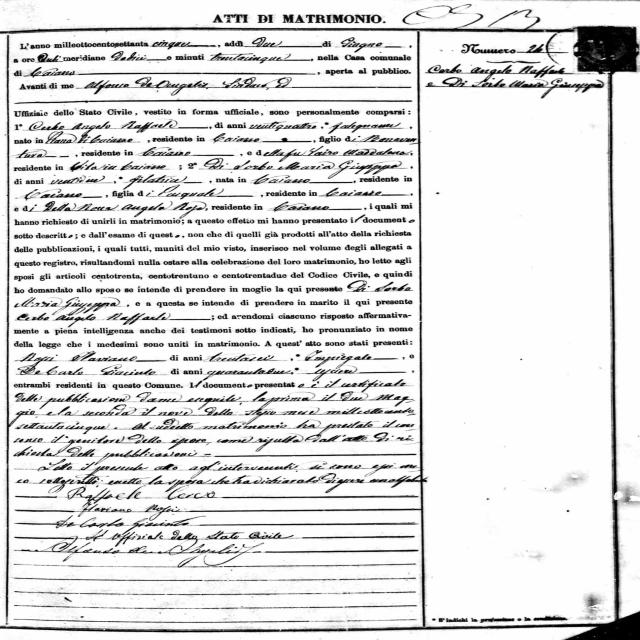 ATTI DI MATRIMONIO.
L'anno milleottocentosettanta cinque, addì Due di Giugno,
a ore meridiane Dodici e minuti trentacinque, nella Casa comunale
di Caiazzo, aperta al pubblico.
Avanti di me Alfonso De Angelis, Sindaco, ed
Uffiziale dello Stato Civile, vestito in forma uffiziale, sono personalmente comparsi:
1° Cerbo Angelo Raffaele, di anni ventiquattro, falegname,
nato in Piana di Caiazzo, residente in Caiazzo, figlio di
residente in Caiazzo, e di
residente in Caiazzo; 2° Di Sorbo Maria Giuseppa
di anni ventidue, filatrice, nata in Caiazzo, residente in
Caiazzo, figlia di Pasquale, residente in Caiazzo,
e di Della Rocca Angela Rosa, residente in Caiazzo, i quali mi
hanno richiesto di unirli in matrimonio; a questo effetto mi hanno presentato il document o
sotto descritto; e dall'esame di questo, non che di quelli già prodotti all'atto della richiesta
delle pubblicazioni, i quali tutti, muniti del mio visto, inserisco nel volume degli allegati a
questo registro, risultandomi nulla ostare alla celebrazione del loro matrimonio, ho letto agli
sposi gli articoli centotrenta, centotrentuno e centotrentadue del Codice Civile, e quindi
ho domandato allo sposo se intende di prendere in moglie la qui presente Di Sorbo
Maria Giuseppa, e a questa se intende di prendere in marito il qui presente
Cerbo Angelo Raffaele; ed avendomi ciascuno risposto affermativa-
mente a piena intelligenza anche dei testimoni sotto indicati, ho pronunziato in nome
della legge che i medesimi sono uniti in matrimonio. A quest'atto sono stati presenti:
Rossi Flaviano di anni trentasei, Impiegato, e
De Carlo Giacinto di anni quarantadue,
entrambi residenti in questo Comune. Il document presentato è il certificato
delle pubblicazioni da me eseguite, la prima il Due Mag-
gio, e la seconda il nove dello stesso mese milleottocento
settantacinque. Al suddetto matrimonio ha prestato il con-
senso il genitore dello sposo, come risulta dall'atto di ri-
chiesta delle pubblicazioni —
Letto il presente atto agl'intervenuti, si sono essi me-
co sottoscritti, eccetto la sposa che ha dichiarato di essere analfabeta
Raffaele Cerbo
Flaviano Rossi
De Carlo Giacinto
L'Uffiziale dello Stato Civile
Alfonso de Angelis
Numero 26
Cerbo Angelo Raffaele
e Di Sorbo Maria Giuseppa
* S'indichi la professione o la condizione.